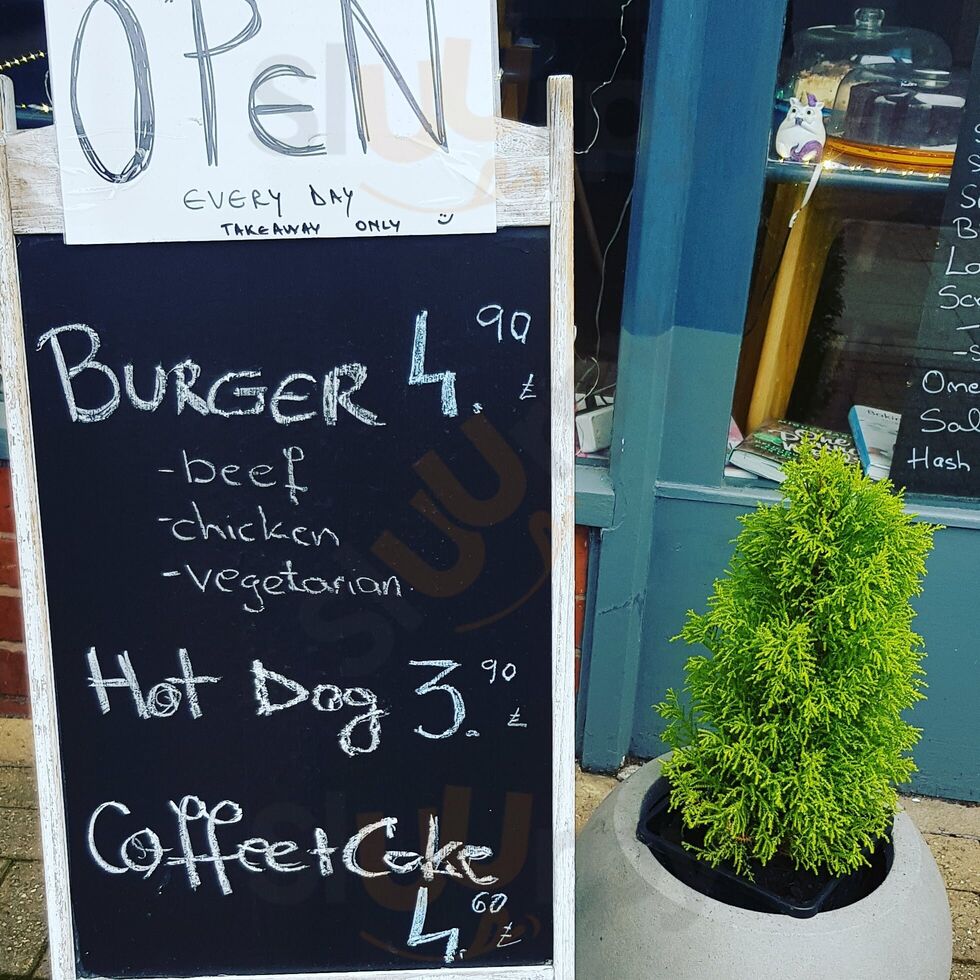 OPEN
EVERY DAY
TAKEAWAY ONLY
BURGER 4.90 £
-beef
-chicken
-vegetarian
Hot Dog 3.90 £
Coffee + Cake
4.60 £
Ome
Sal
Hash
sluurpy